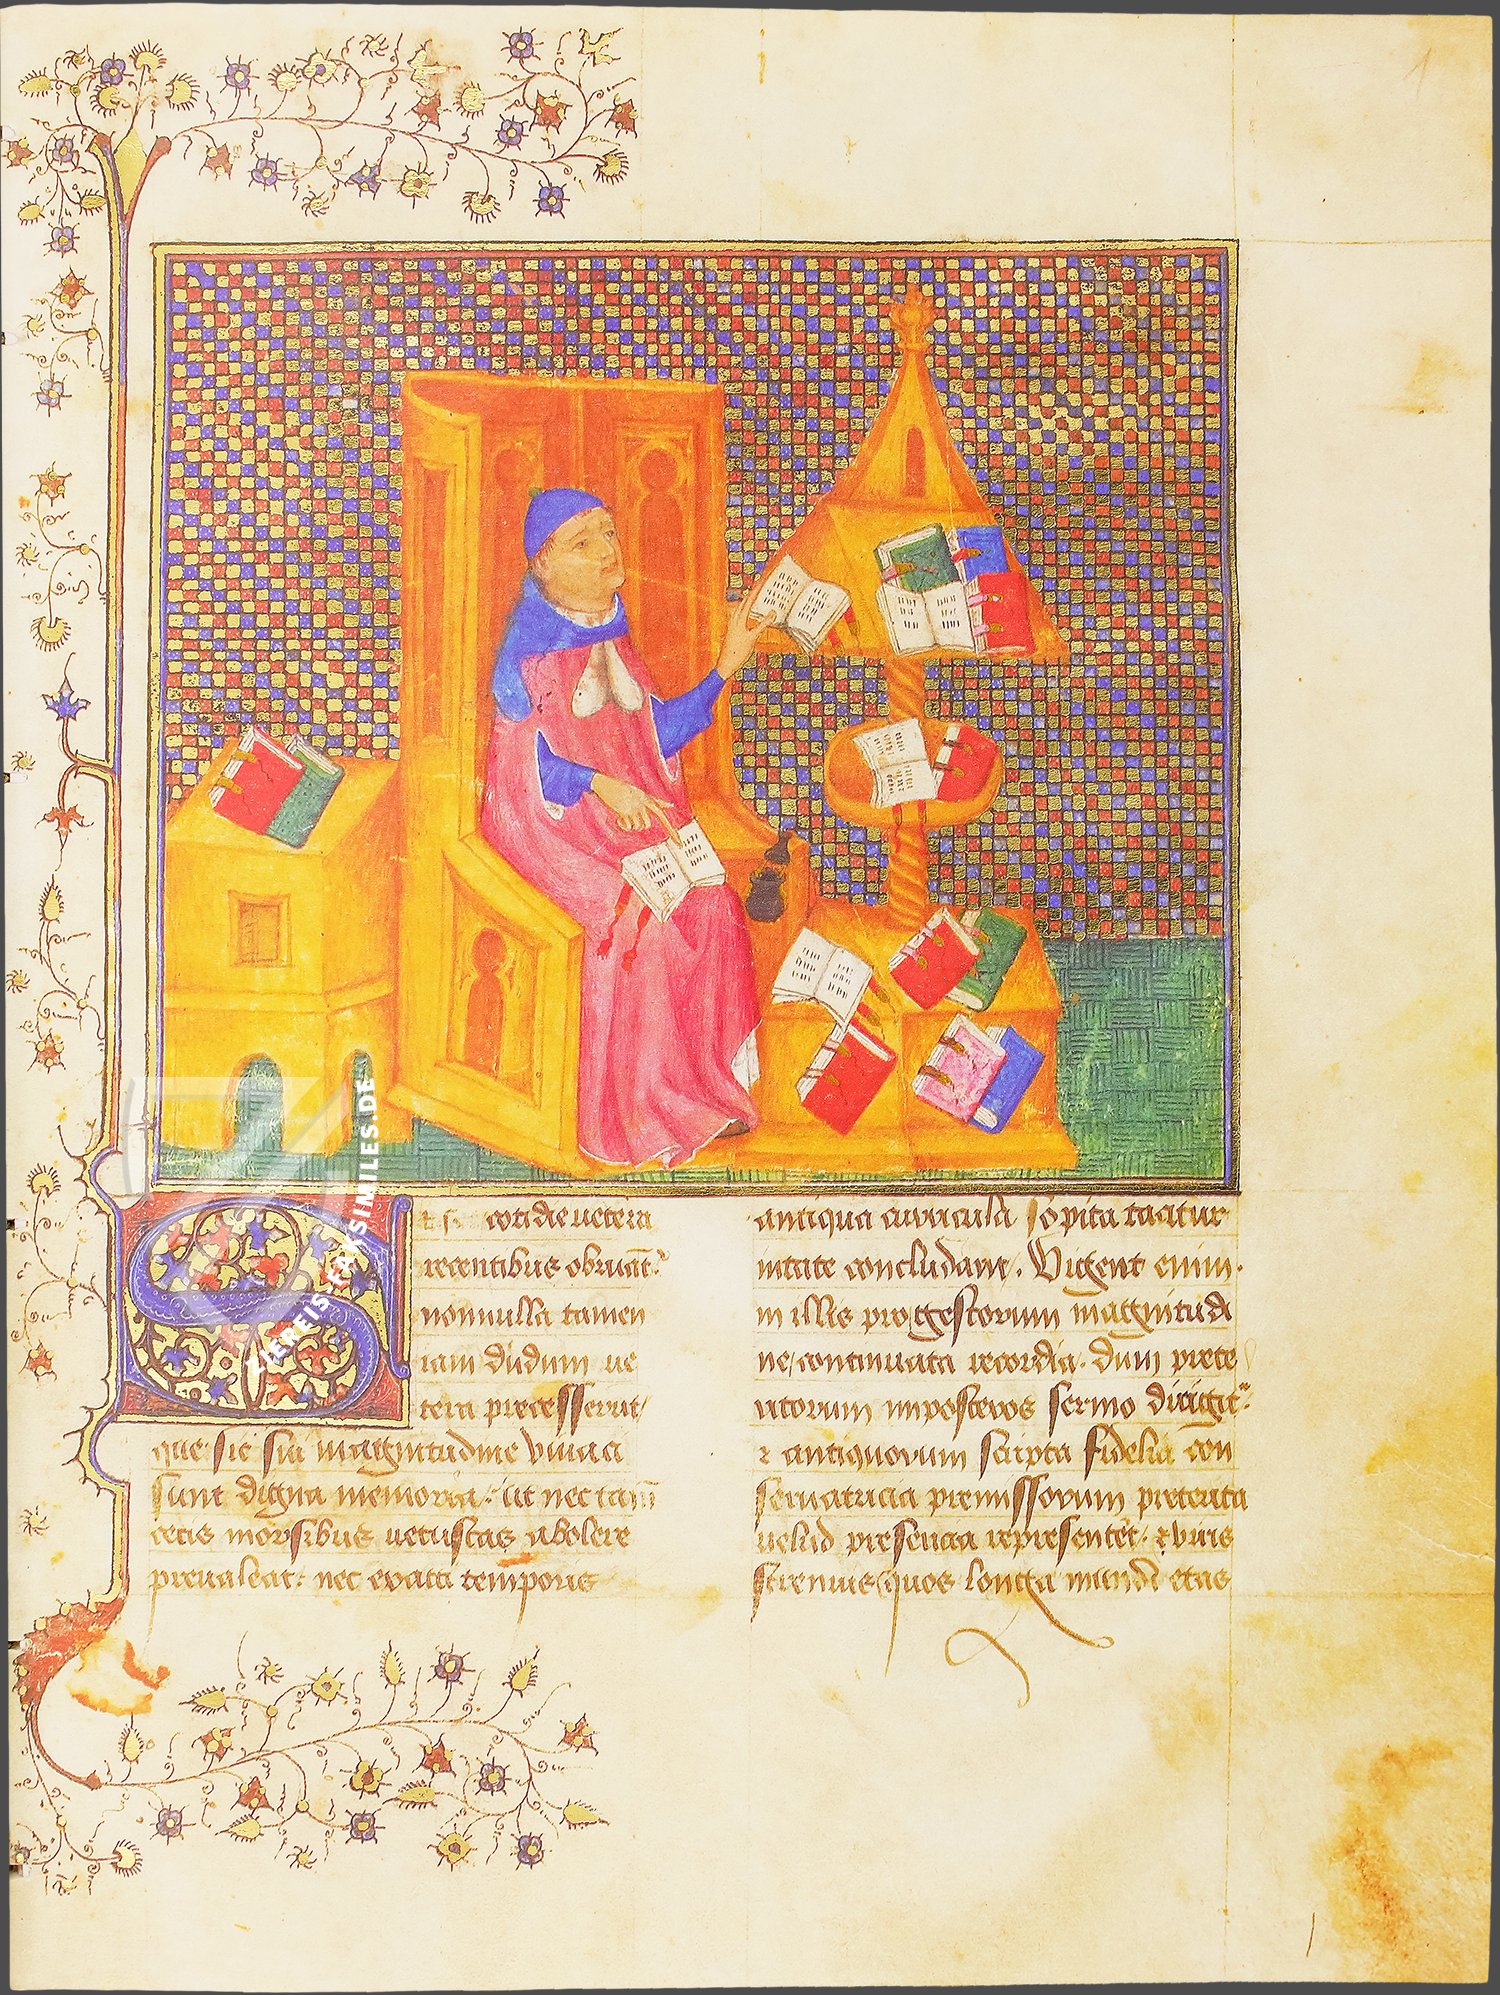 S
cotidie uetera
recentibus obruāt᷑
nonnulla tamen
iam dudum ue
tera precesserut
que sic sui magnitudine viuaci
sunt digna memoria. ut nec
cecis morsibus uetustas abolere
preualeat. nec exacti temporis
antiqua curricula sopita tacitur
nitate concludant. Vigent enim.
in illis pro gestorum magnitudi
ne continuata recordia. dum prete
ritorum in posteros sermo dirigit᷑.
⁊ antiquorum scripta fidelia con
seruatricia premissorum preterita
uelud presencia representēt. ⁊ viris
strenuis quos longa mundi etas
1
ZIEREIS-FAKSIMILES.DE